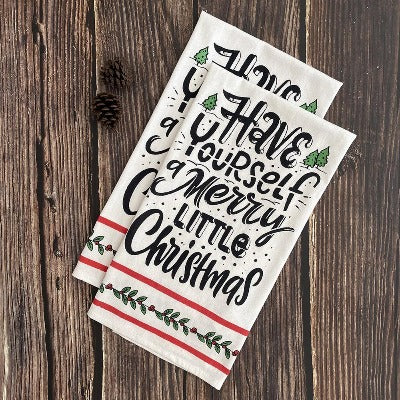 Have
YOURSELF
a Merry
LITTLE
Christmas
Have
YOURSELF
a Merry
LITTLE
Christmas